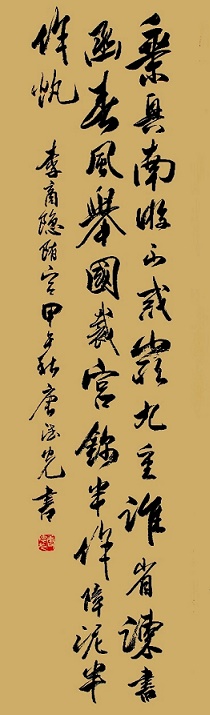 乘興南游不戒嚴九重誰省諫書
函春風舉國裁宮錦半作障泥半
作帆
李商隐隋宮甲午秋唐書